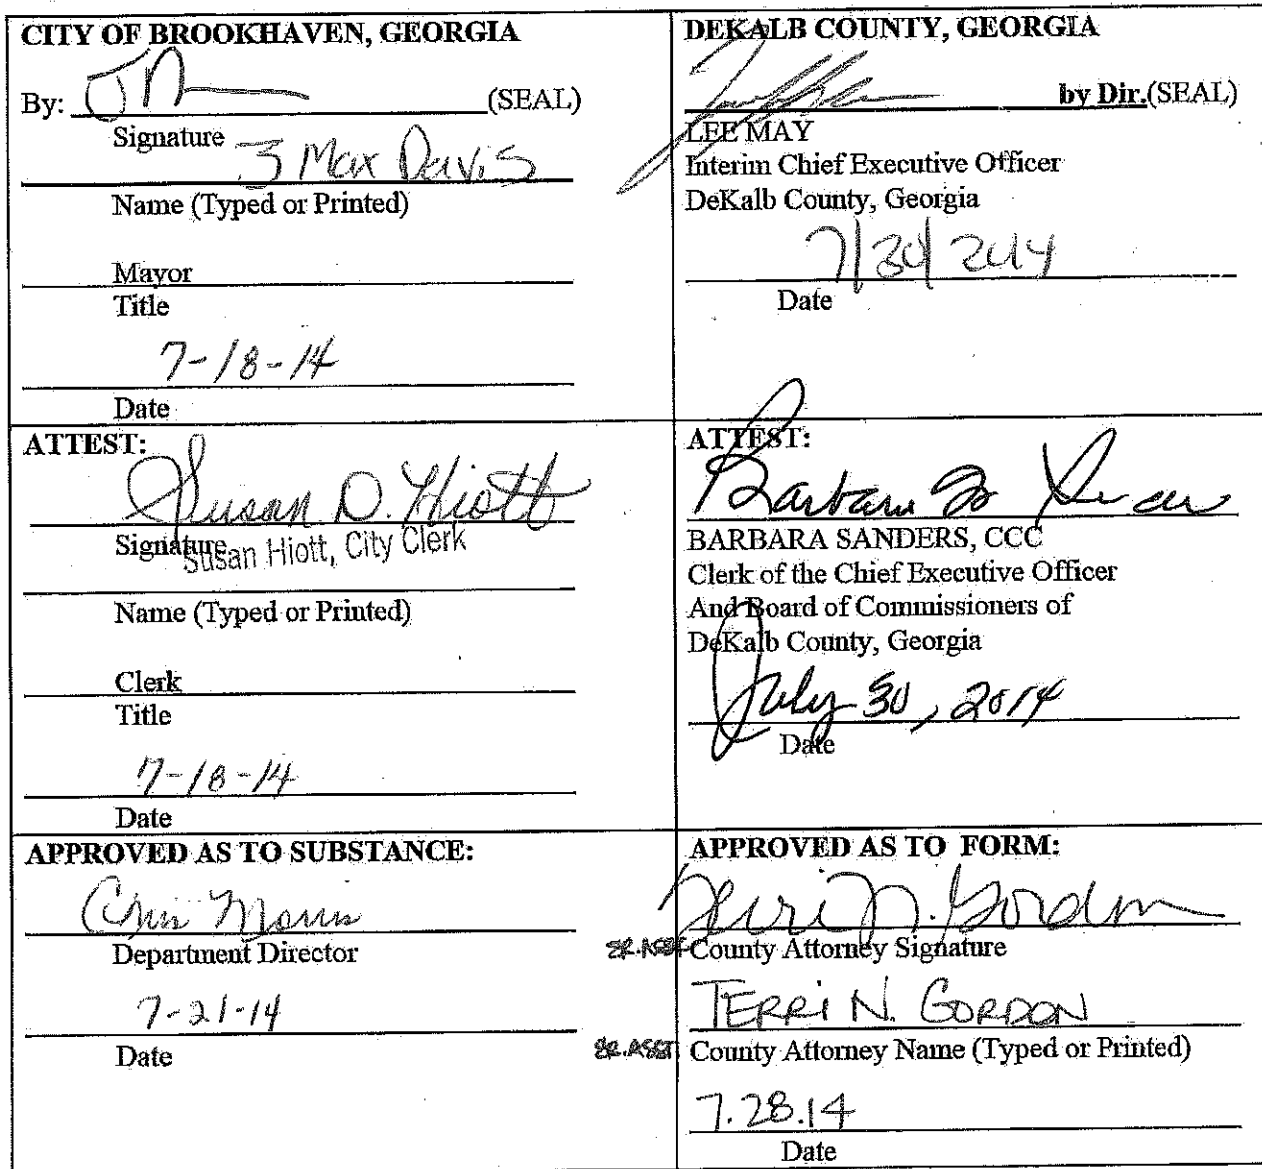 CITY OF BROOKHAVEN, GEORGIA
By: (SEAL)
Signature
J Max Davis
Name (Typed or Printed)
Mayor
Title
7-18-14
Date
DEKALB COUNTY, GEORGIA
by Dir.(SEAL)
LEE MAY
Interim Chief Executive Officer
DeKalb County, Georgia
7/30/2014
Date
ATTEST:
Susan D. Hiott
Signature
Susan Hiott, City Clerk
Name (Typed or Printed)
Clerk
Title
7-18-14
Date
ATTEST:
BARBARA SANDERS, CCC
Clerk of the Chief Executive Officer
And Board of Commissioners of
DeKalb County, Georgia
July 30, 2014
Date
APPROVED AS TO SUBSTANCE:
Chris Morris
Department Director
7-21-14
Date
APPROVED AS TO FORM:
Terri N. Gordon
SR. ASST County Attorney Signature
TERRI N. GORDON
SR. ASST County Attorney Name (Typed or Printed)
7.28.14
Date